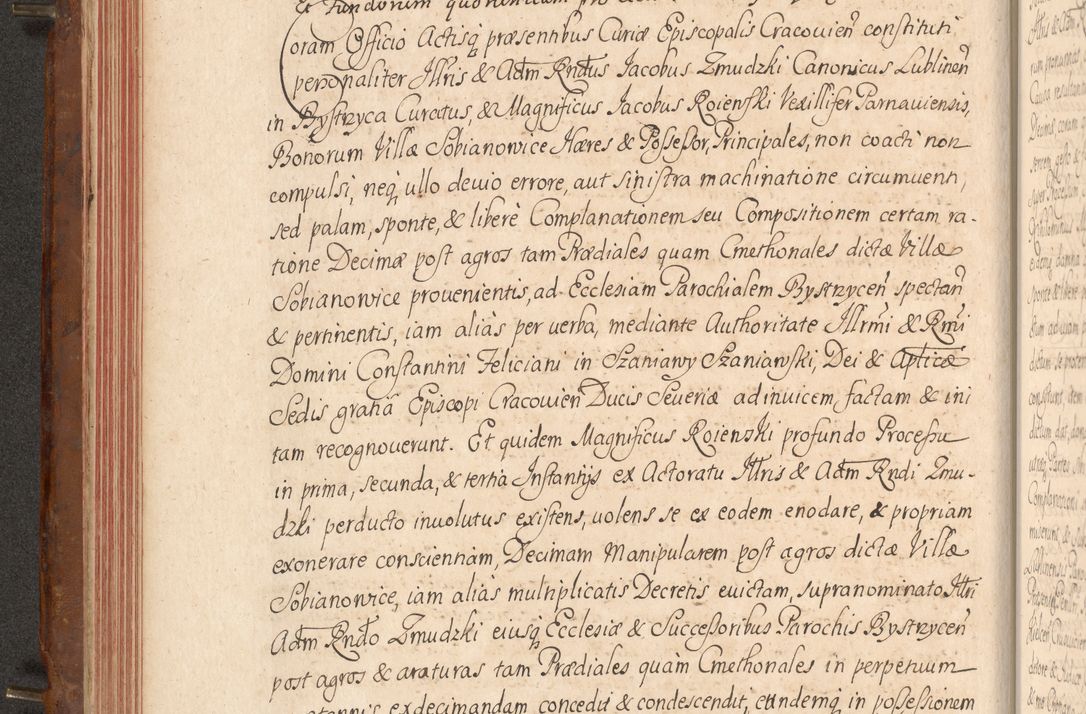 oram Officio Actisq̃ præsentibus Curiæ Episcopalis Cracouień constituti
personaliter Illris & Adm Rndus Jacobus Zmudzki Canonicus Lublineń
in Bystrzyca Curatus, & Magnificus Jacobus Roienski Vexillifer Parnauiensis,
Bonorum Villæ Sobianowice Hæres & Possessor, Principales, non coacti non
compulsi, neq̃ ullo deuio errore, aut sinistra machinatione circumuenti,
sed palam, sponte, & liberè Complanationem seu Compositionem certam ra-
tione Decimæ post agros tam Prædiales quam Cmethonales dictæ Villæ
Sobianowice prouenientis, ad Ecclesiam Parochialem Bystrzyceń spectań
& pertinentis, iam aliàs per uerba, mediante Authoritate Illrmi & Rmi
Domini Constantini Feliciani in Szaniawy Szaniawski, Dei & Apticæ
Sedis gratiâ Episcopi Cracouień Ducis Seueriæ ad inuicem factam & ini
tam recognouerunt. Et quidem Magnificus Roienski profundo Processu
in prima, secunda, & tertia Instantijs ex Actoratu Illris & Adm Rndi Zmu-
dzki perducto inuolutus existens, uolens se ex eodem enodare, & propriam
exonerare conscientiam, Decimam Manipularem post agros dictæ Villæ
Sobianowice, iam aliàs multiplicatis Decretis euictam, supranominato Illri
Adm Rndo Zmudzki eiusq̃ Ecclesiæ & Successoribus Parochis Bystrzyceń
post agros & araturas tam Prædiales quàm Cmethonales in perpetuum
ex decimandam concedit & condescendit, eandemq̃ in possessionem